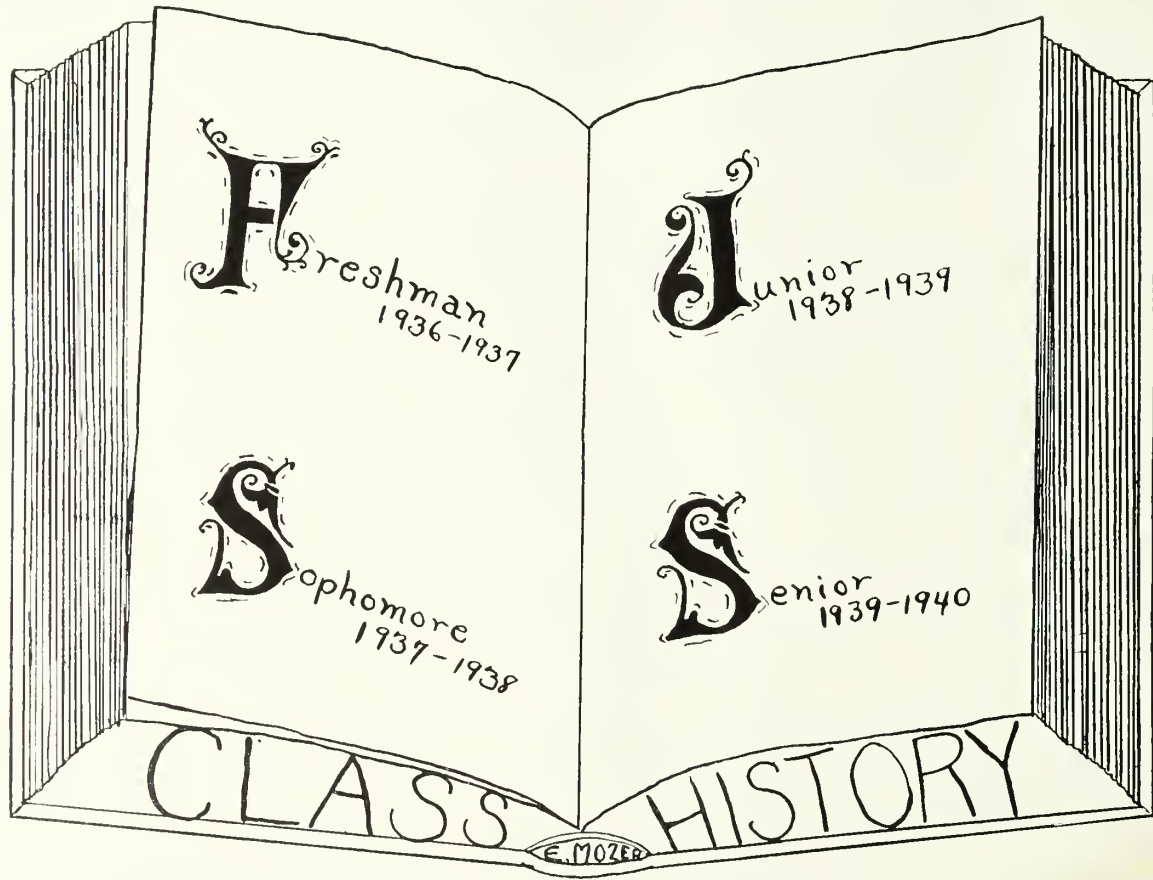 Freshman
1936-1937
Sophomore
1937-1938
Junior
1938-1939
Senior
1939-1940
CLASS HISTORY
E. MOZER